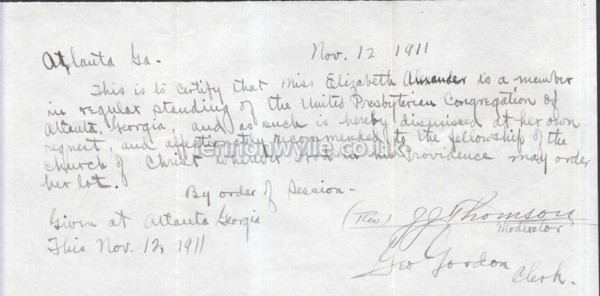 Atlanta Ga. Nov. 12 1911
This is to Certify that Miss Elizabeth Alexander is a member
in regular standing of the United Presbyterian Congregation of
Atlanta, Georgia, and as such is hereby dismissed at her own
request, and affectionately recommended to the fellowship of the
church of Christ wherever God in his Providence may order
her lot.
By order of Session -
Given at Atlanta Georgia
This Nov. 12, 1911
(Rev) J. J. Thomson
Moderator
Geo Gordon
Clerk.